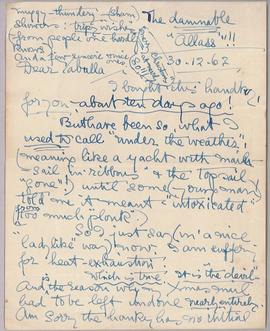 "muggy - thundery (Sham)
Showers: trip wishes
(from people one hardly
knows
And a few sincere ones
The damnable
"Allass"!!
30-12-62
Dear Zaballa
I bought this handker
for you - about ten days ago!
But have been so, what I
used to call "under the weather",
(meaning like a yacht with main
sail in ribbons & the topsail
"gone"!) until some (young man)
told me it meant "intoxicated
(from
too much plonk".)
So I just say (in a nice
ladylike" way) now I am suffer
for "heat-exhaustion"!
Which is true. It is the devil"
And the season why my Xmas mail
had to be left undone nearly entirely.
Am sorry the hankey has no initial